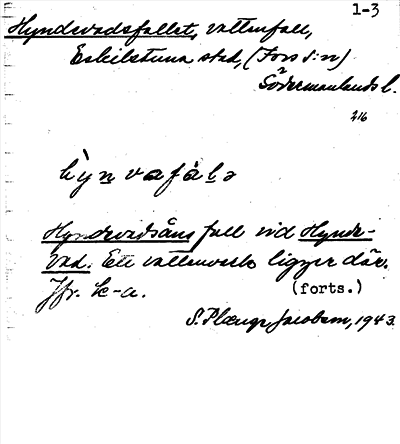 1-3
Hyndevadsfallet, vattenfall,
Eskilstuna stad, (Fors s:n)
Södermanlands l.
216
hy̱nvafàḻə
Hyndevadsåns fall vid Hynde-
vad. Ett vattenverk ligger där.
Jfr. k-a.
(forts.)
S. Plænge Jacobson, 1943.